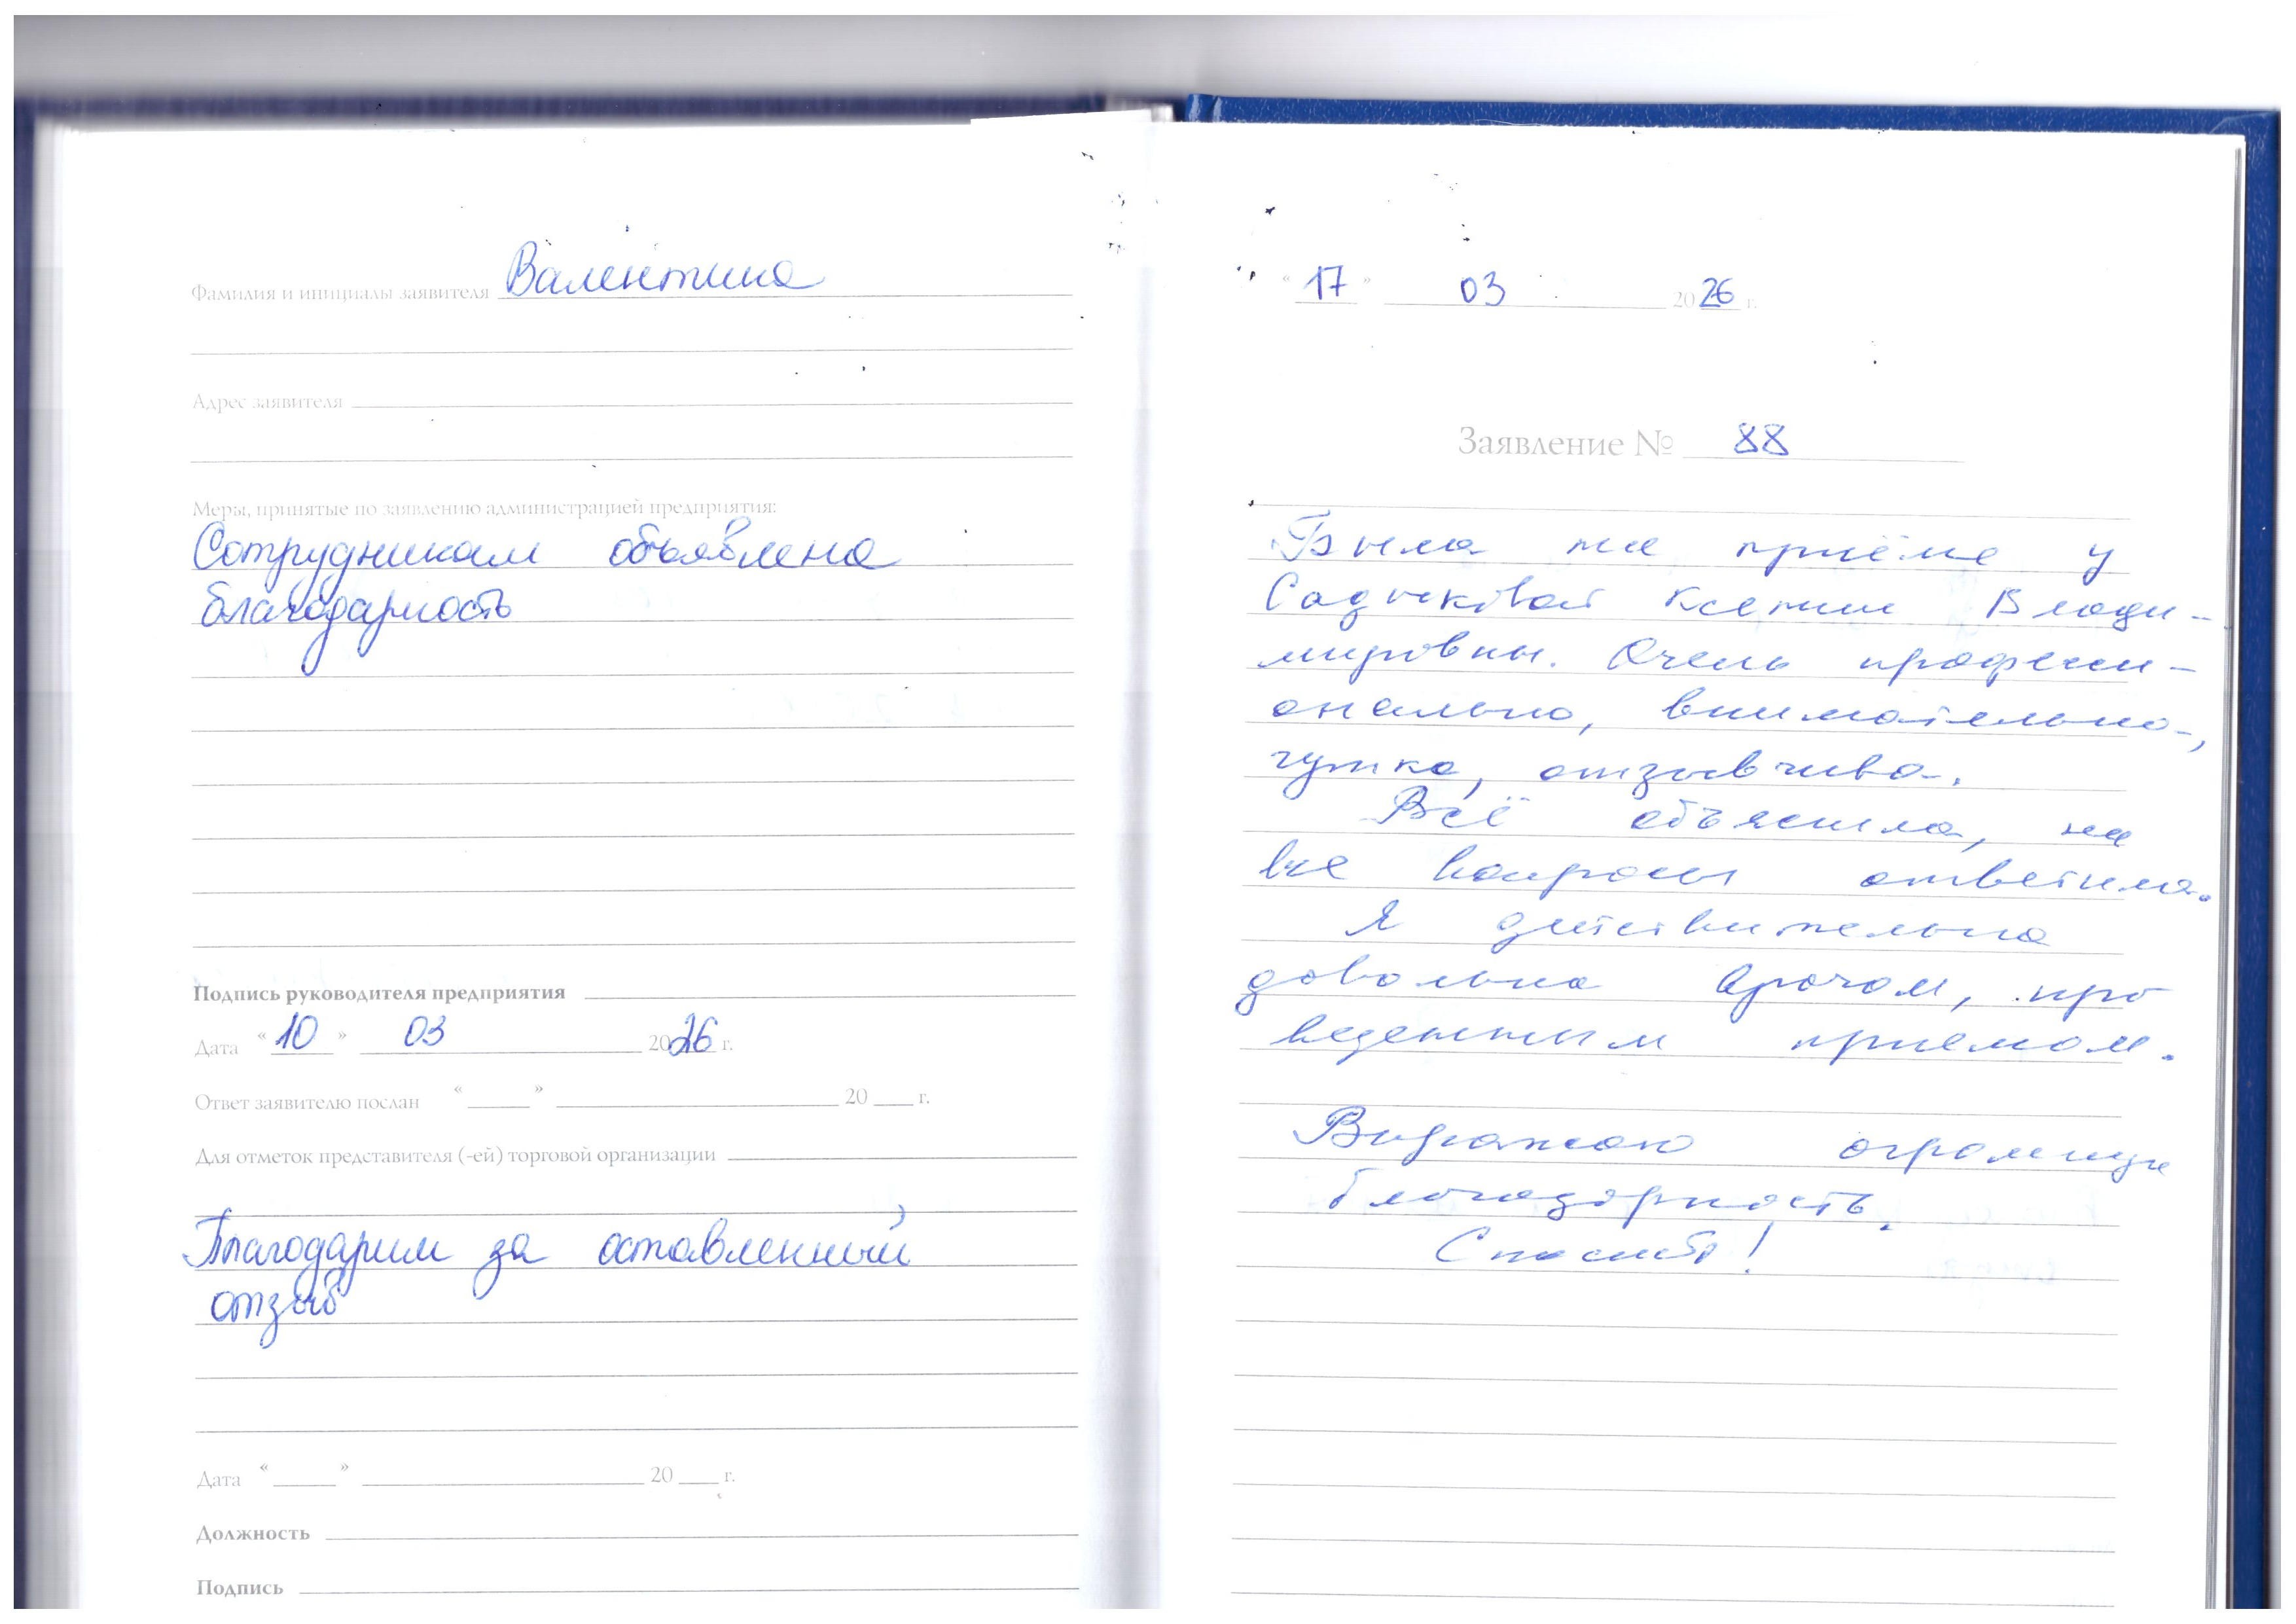 Фамилия и инициалы заявителя Валентина
Адрес заявителя
Меры, принятые по заявлению администрацией предприятия:
Сотрудникам объявлена
благодарность
Подпись руководителя предприятия
Дата « 10 » 03 2026 г.
Ответ заявителю послан « » 20 г.
Для отметок представителя (-ей) торговой организации
Благодарим за оставленный
отзыв
Дата « » 20 г.
Должность
Подпись
« 17 » 03 2026 г.
Заявление № 88
Была на приёме у
Садыковой Ксении Влади-
мировны. Очень професси-
онально, внимательно,
чутко, отзывчиво.
Всё объяснила, на
все вопросы ответила.
Я действительно
довольна врачом, про
веденным приемом.
Выражаю огромную
благодарность.
Спасибо!